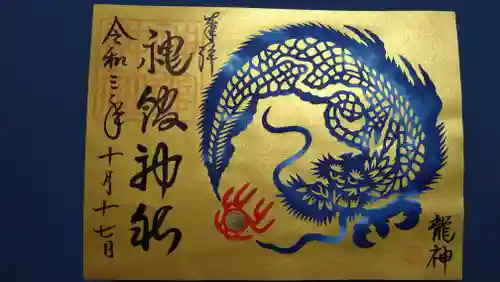 奉拝
神社
令和三年十月十七日
龍神